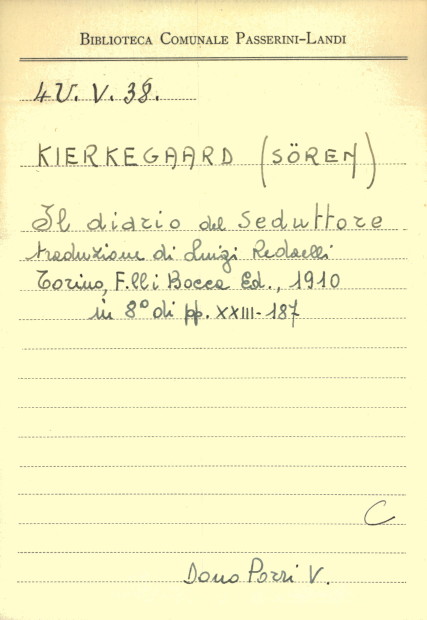 BIBLIOTECA COMUNALE PASSERINI-LANDI
4U. V. 38.
KIERKEGAARD (SÖREN)
Il diario del Seduttore
traduzione di Luigi Redaelli
Torino, F.lli Bocca Ed., 1910
in 8° di pp. XXIII-187
C
Dono Pozzi V.